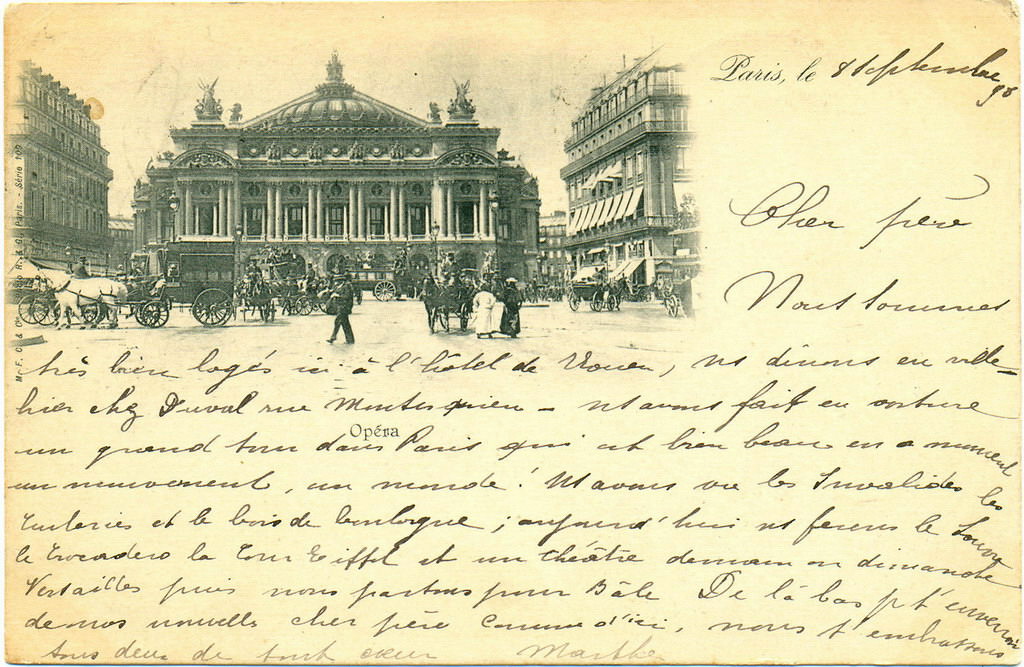 Paris, le 8 septembre 98
Cher père
Nous sommes
très bien logés ici à l'hôtel de Rouen, ns dinons en ville -
hier chez Duval rue Montesquieu - ns avons fait en voiture
un grand tour dans Paris qui est bien beau en ce moment
Opéra
un mouvement, un monde! Ns avons vu les Invalides les
Tuileries et le bois de boulogne; aujourd'hui ns ferons le Louvre
le Trocadero la Tour Eiffel et un théâtre demain ou dimanche
Versailles puis nous partons pour Bâle De là bas je t'enverrai
de nos nouvelles cher père comme d'ici, nous t'embrassons
tous deux de tout cœur Marthe
M. F. C. & Cie Paris. - Série 109